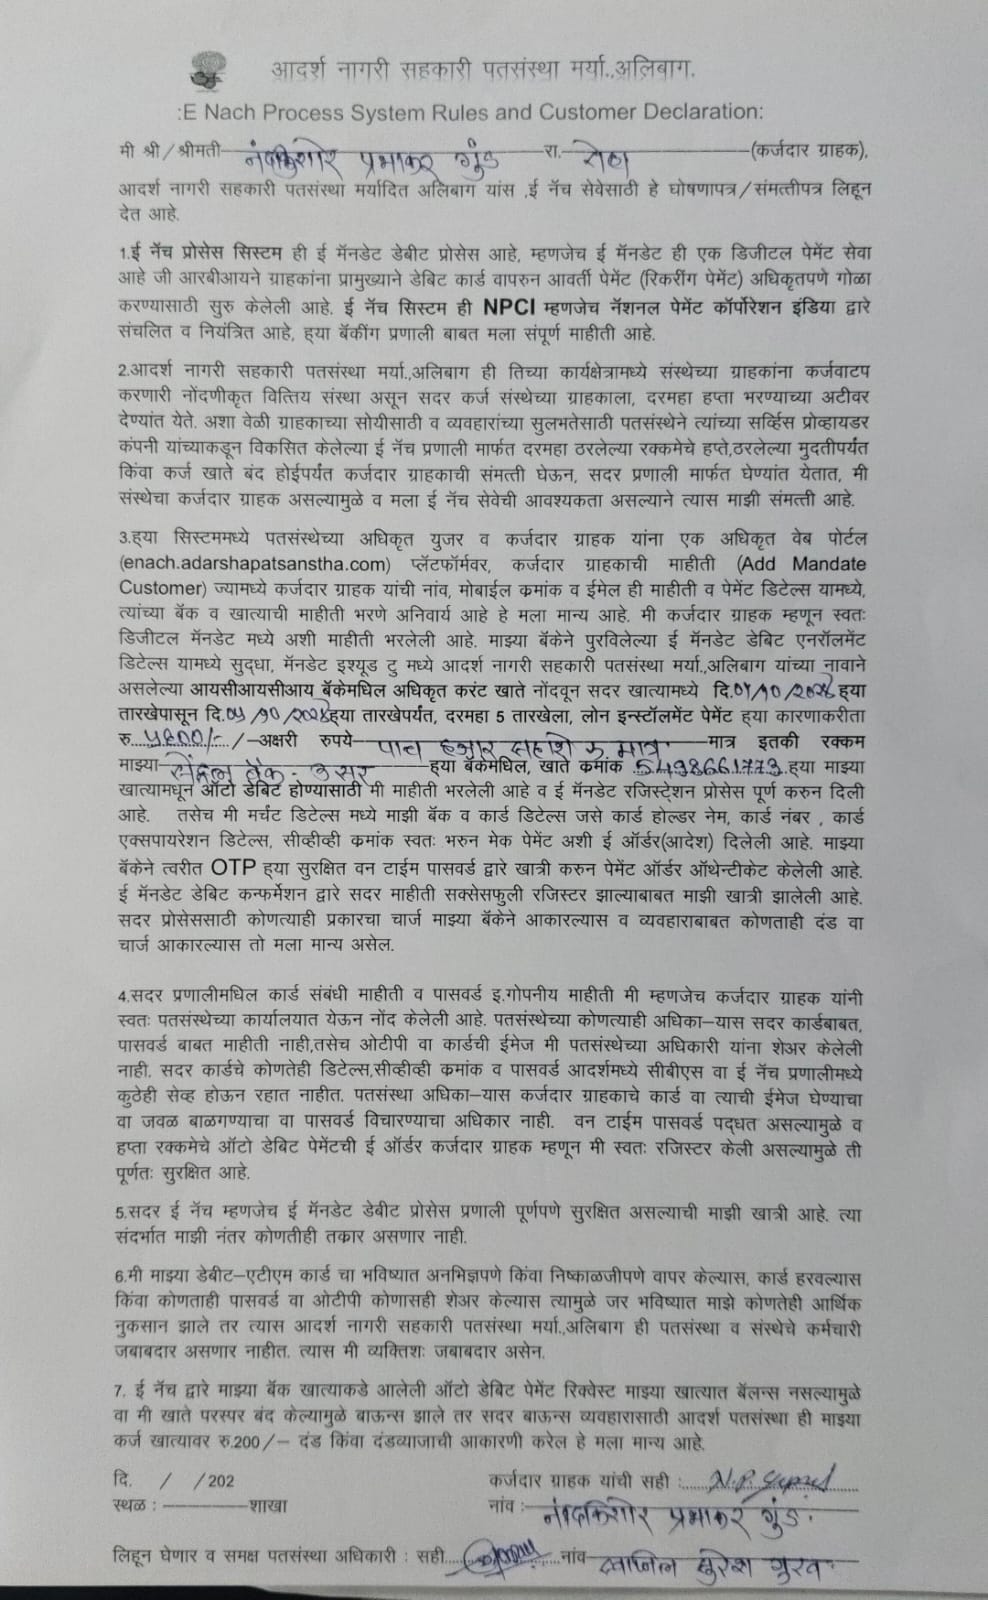 आदर्श नागरी सहकारी पतसंस्था मर्या.,अलिबाग.
:E Nach Process System Rules and Customer Declaration:
मी श्री/श्रीमती नंदकिशोर प्रभाकर गुंड रा. रोहा (कर्जदार ग्राहक),
आदर्श नागरी सहकारी पतसंस्था मर्यादित अलिबाग यांस ,ई नॅच सेवेसाठी हे घोषणापत्र/संमत्तीपत्र लिहून
देत आहे.
1.ई नॅच प्रोसेस सिस्टिम ही ई मॅनडेट डेबीट प्रोसेस आहे, म्हणजेच ई मॅनडेट ही एक डिजीटल पेमेंट सेवा
आहे जी आरबीआयने ग्राहकांना प्रामुख्याने डेबिट कार्ड वापरुन आवर्ती पेमेंट (रिकरींग पेमेंट) अधिकृतपणे गोळा
करण्यासाठी सुरु केलेली आहे. ई नॅच सिस्टम ही NPCI म्हणजेच नॅशनल पेमेंट कॉर्पोरेशन इंडिया द्वारे
संचलित व नियंत्रित आहे, ह्या बॅकींग प्रणाली बाबत मला संपूर्ण माहीती आहे.
2.आदर्श नागरी सहकारी पतसंस्था मर्या.,अलिबाग ही तिच्या कार्यक्षेत्रामध्ये संस्थेच्या ग्राहकांना कर्जवाटप
करणारी नोंदणीकृत वित्तिय संस्था असून सदर कर्ज संस्थेच्या ग्राहकाला, दरमहा हप्ता भरण्याच्या अटीवर
देण्यांत येते. अशा वेळी ग्राहकाच्या सोयीसाठी व व्यवहारांच्या सुलभतेसाठी पतसंस्थेने त्यांच्या सर्व्हिस प्रोव्हायडर
कंपनी यांच्याकडून विकसित केलेल्या ई नॅच प्रणाली मार्फत दरमहा ठरलेल्या रक्कमेचे हप्ते,ठरलेल्या मुदतीपर्यंत
किंवा कर्ज खाते बंद होईपर्यंत कर्जदार ग्राहकाची संमत्ती घेऊन, सदर प्रणाली मार्फत घेण्यांत येतात, मी
संस्थेचा कर्जदार ग्राहक असल्यामुळे व मला ई नॅच सेवेची आवश्यकता असल्याने त्यास माझी संमत्ती आहे.
3.ह्या सिस्टममध्ये पतसंस्थेच्या अधिकृत युजर व कर्जदार ग्राहक यांना एक अधिकृत वेब पोर्टल
(enach.adarshapatsanstha.com) प्लॅटफॉर्मवर, कर्जदार ग्राहकाची माहीती (Add Mandate
Customer) ज्यामध्ये कर्जदार ग्राहक यांची नांव, मोबाईल क्रमांक व ईमेल ही माहीती व पेमेंट डिटेल्स यामध्ये,
त्यांच्या बॅक व खात्याची माहीती भरणे अनिवार्य आहे हे मला मान्य आहे. मी कर्जदार ग्राहक म्हणून स्वतः
डिजीटल मॅनडेट मध्ये अशी माहीती भरलेली आहे. माझ्या बॅकेने पुरविलेल्या ई मॅनडेट डेबिट एनरॉलमेंट
डिटेल्स यामध्ये सुद्धा, मॅनडेट इश्यूड टु मध्ये आदर्श नागरी सहकारी पतसंस्था मर्या.,अलिबाग यांच्या नावाने
असलेल्या आयसीआयसीआय बॅकेमधिल अधिकृत करंट खाते नोंदवून सदर खात्यामध्ये दि. /10/ ह्या
तारखेपासून दि.०५/१०/ ह्या तारखेपर्यंत, दरमहा 5 तारखेला, लोन इन्स्टॉलमेंट पेमेंट ह्या कारणाकरीता
रु. ५६००/- /-अक्षरी रुपये पाच हजार सहाशे रु. मात्र मात्र इतकी रक्कम
माझ्या सेंट्रल बँक- उसर ह्या बॅकेमधिल, खाते क्रमांक 5498661773 ह्या माझ्या
खात्यामधून ऑटो डेबिट होण्यासाठी मी माहीती भरलेली आहे व ई मॅनडेट रजिस्ट्रेशन प्रोसेस पूर्ण करुन दिली
आहे. तसेच मी मर्चंट डिटेल्स मध्ये माझी बॅक व कार्ड डिटेल्स जसे कार्ड होल्डर नेम, कार्ड नंबर , कार्ड
एक्सपायरेशन डिटेल्स, सीव्हीव्ही क्रमांक स्वतः भरुन मेक पेमेंट अशी ई ऑर्डर(आदेश) दिलेली आहे. माझ्या
बॅकेने त्वरीत OTP ह्या सुरक्षित वन टाईम पासवर्ड द्वारे खात्री करुन पेमेंट ऑर्डर ऑथेन्टीकेट केलेली आहे.
ई मॅनडेट डेबिट कन्फर्मेशन द्वारे सदर माहीती सक्सेसफुली रजिस्टर झाल्याबाबत माझी खात्री झालेली आहे.
सदर प्रोसेससाठी कोणत्याही प्रकारचा चार्ज माझ्या बॅकेने आकारल्यास व व्यवहाराबाबत कोणताही दंड वा
चार्ज आकारल्यास तो मला मान्य असेल.
4.सदर प्रणालीमधिल कार्ड संबंधी माहीती व पासवर्ड इ.गोपनीय माहीती मी म्हणजेच कर्जदार ग्राहक यांनी
स्वतः पतसंस्थेच्या कार्यालयात येऊन नोंद केलेली आहे. पतसंस्थेच्या कोणत्याही अधिका-यास सदर कार्डबाबत,
पासवर्ड बाबत माहीती नाही,तसेच ओटीपी वा कार्डची ईमेज मी पतसंस्थेच्या अधिकारी यांना शेअर केलेली
नाही. सदर कार्डचे कोणतेही डिटेल्स,सीव्हीव्ही क्रमांक व पासवर्ड आदर्शमध्ये सीबीएस वा ई नॅच प्रणालीमध्ये
कुठेही सेव्ह होऊन रहात नाहीत. पतसंस्था अधिका-यास कर्जदार ग्राहकाचे कार्ड वा त्याची ईमेज घेण्याचा
वा जवळ बाळगण्याचा वा पासवर्ड विचारण्याचा अधिकार नाही. वन टाईम पासवर्ड पद्धत असल्यामुळे व
हप्ता रक्कमेचे ऑटो डेबिट पेमेंटची ई ऑर्डर कर्जदार ग्राहक म्हणून मी स्वतः रजिस्टर केली असल्यामुळे ती
पूर्णतः सुरक्षित आहे.
5.सदर ई नॅच म्हणजेच ई मॅनडेट डेबीट प्रोसेस प्रणाली पूर्णपणे सुरक्षित असल्याची माझी खात्री आहे. त्या
संदर्भात माझी नंतर कोणतीही तकार असणार नाही.
6.मी माझ्या डेबीट-एटीएम कार्ड चा भविष्यात अनभिज्ञपणे किंवा निष्काळजीपणे वापर केल्यास, कार्ड हरवल्यास
किंवा कोणताही पासवर्ड वा ओटीपी कोणासही शेअर केल्यास त्यामुळे जर भविष्यात माझे कोणतेही आर्थिक
नुकसान झाले तर त्यास आदर्श नागरी सहकारी पतसंस्था मर्या.,अलिबाग ही पतसंस्था व संस्थेचे कर्मचारी
जबाबदार असणार नाहीत. त्यास मी व्यक्तिशः जबाबदार असेन.
7. ई नॅच द्वारे माझ्या बॅक खात्याकडे आलेली ऑटो डेबिट पेमेंट रिक्वेस्ट माझ्या खात्यात बॅलन्स नसल्यामुळे
वा मी खाते परस्पर बंद केल्यामुळे बाऊन्स झाले तर सदर बाऊन्स व्यवहारासाठी आदर्श पतसंस्था ही माझ्या
कर्ज खात्यावर रु.200/- दंड किंवा दंडव्याजाची आकारणी करेल हे मला मान्य आहे.
दि. / /202 कर्जदार ग्राहक यांची सही :
स्थळ : शाखा नांव : नंदकिशोर प्रभाकर गुंड.
लिहून घेणार व समक्ष पतसंस्था अधिकारी : सही नांव स्वप्निल सुरेश गुरव